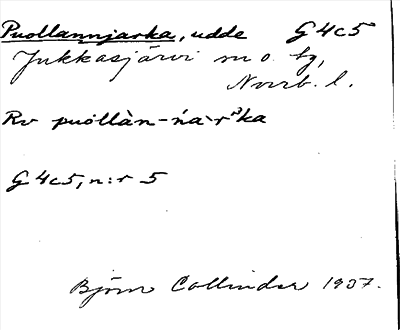 Puollannjarka, udde G4c5
Jukkasjärvi sn o. tg,
Norrb. l.
Rv puollàn-ńa·rˀka
G4c5, n:r 5
Björn Collinder 1937.